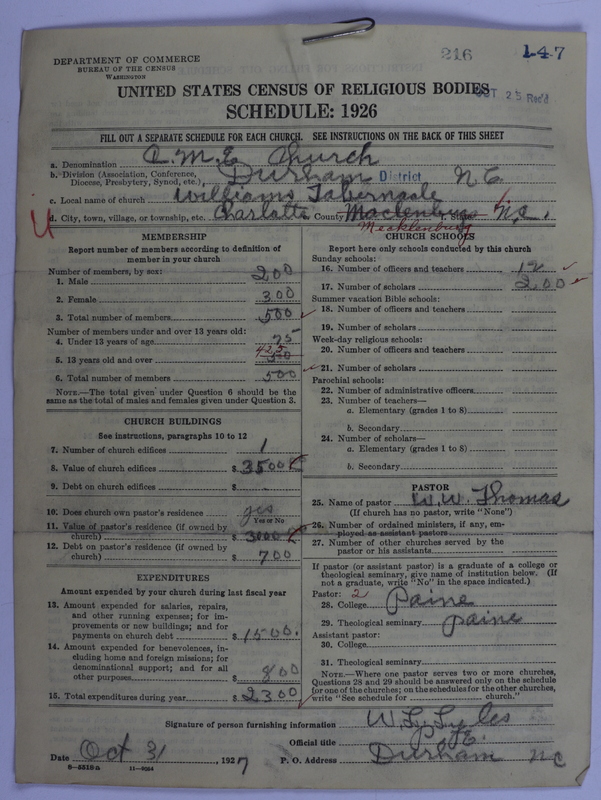 216 147
DEPARTMENT OF COMMERCE
BUREAU OF THE CENSUS
WASHINGTON
UNITED STATES CENSUS OF RELIGIOUS BODIES
OCT 25 Rec'd
SCHEDULE: 1926
FILL OUT A SEPARATE SCHEDULE FOR EACH CHURCH. SEE INSTRUCTIONS ON THE BACK OF THIS SHEET
a. Denomination C.M.E Church
b. Division (Association, Conference, Diocese, Presbytery, Synod, etc.) Durham District N C
c. Local name of church Williams Tabernacle
d. City, town, village, or township, etc. Charlotte County Macklenburg N.C.
Mecklenburg
U
MEMBERSHIP
Report number of members according to definition of
member in your church
Number of members, by sex:
1. Male 200
2. Female 300
3. Total number of members 500
Number of members under and over 13 years old:
4. Under 13 years of age 75
425
5. 13 years old and over
6. Total number of members 500
NOTE.—The total given under Question 6 should be the
same as the total of males and females given under Question 3.
CHURCH BUILDINGS
See instructions, paragraphs 10 to 12
7. Number of church edifices 1
8. Value of church edifices $ 3500
9. Debt on church edifices $
10. Does church own pastor's residence yes
Yes or No
11. Value of pastor's residence (if owned by
church) $ 3000
12. Debt on pastor's residence (if owned by
church) $ 700
EXPENDITURES
Amount expended by your church during last fiscal year
13. Amount expended for salaries, repairs,
and other running expenses; for im-
provements or new buildings; and for
payments on church debt $ 1500.
14. Amount expended for benevolences, in-
cluding home and foreign missions; for
denominational support; and for all
other purposes $ 800
15. Total expenditures during year $ 2300
CHURCH SCHOOLS
Report here only schools conducted by this church
Sunday schools:
16. Number of officers and teachers 12
17. Number of scholars 200
Summer vacation Bible schools:
18. Number of officers and teachers
19. Number of scholars
Week-day religious schools:
20. Number of officers and teachers
21. Number of scholars
Parochial schools:
22. Number of administrative officers
23. Number of teachers—
a. Elementary (grades 1 to 8)
b. Secondary
24. Number of scholars—
a. Elementary (grades 1 to 8)
b. Secondary
PASTOR
25. Name of pastor W.W. Thomas
(If church has no pastor, write "None")
26. Number of ordained ministers, if any, em-
ployed as assistant pastors
27. Number of other churches served by the
pastor or his assistants
If pastor (or assistant pastor) is a graduate of a college or
theological seminary, give name of institution below. (If
not a graduate, write "No" in the space indicated.)
Pastor: 2
28. College Paine
29. Theological seminary paine
Assistant pastor:
30. College
31. Theological seminary
NOTE.—Where one pastor serves two or more churches,
Questions 28 and 29 should be answered only on the schedule
for one of the churches; on the schedules for the other churches,
write "See schedule for church."
Signature of person furnishing information W. L. Lyles
Official title P.E.
Date Oct 31, 1927 P. O. Address Durham N C
8-5518 a 11-9054